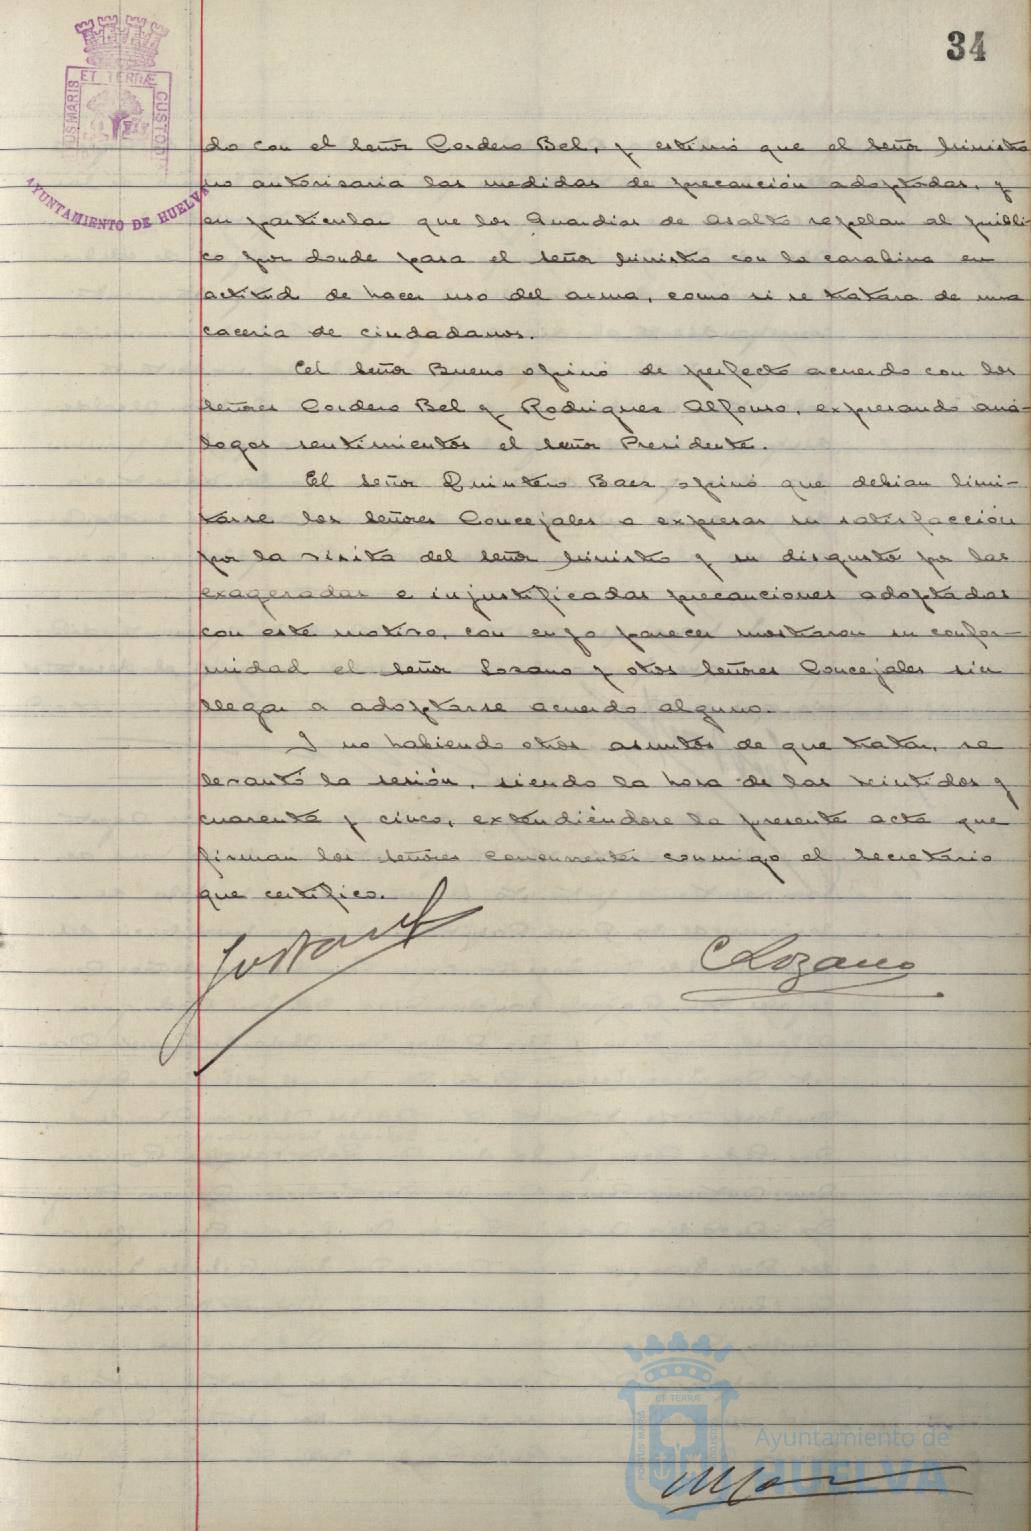 34
ET TERRÆ
US MARIS
CUSTODI
AYUNTAMIENTO DE HUELVA
do con el señor Cordero Bel, y estimó que el señor Ministro
no autorizaria las medidas de precaución adoptadas, y
en particular que los Guardias de Asalto repelan al públi-
co por donde pasa el señor Ministro con la carabina en
actitud de hacer uso del arma, como si se tratara de una
caceria de ciudadanos.
El señor Bueno opinó de perfecto acuerdo con los
señores Cordero Bel y Rodriguez Alfonso, expresando aná-
logos sentimientos el señor Presidente.
El señor Quintero Baez opinó que debian limi-
tarse los señores Concejales a expresar su satisfacción
por la visita del señor Ministro y su disgusto por las
exageradas e injustificadas precauciones adoptadas
con este motivo, con cuyo parecer mostraron su confor-
midad el señor Lozano y otros señores Concejales sin
llegar a adoptarse acuerdo alguno.
Y no habiendo otros asuntos de que tratar, se
levantó la sesión, siendo la hora de las veintidos y
cuarenta y cinco, extendiéndose la presente acta que
firman los señores concurrentes conmigo el Secretario
que certifico.
Lozano
ET TERRÆ
Ayuntamiento de
HUELVA